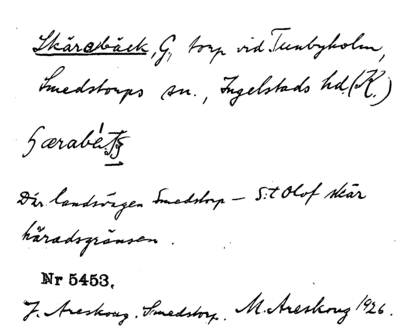 Skärabäck, G, torp vid Tunbyholm,
Smedstorps sn., Ingelstads hd. (K.)
Där landsvägen Smedstorp – S:t Olof skär
häradsgränsen.
Nr 5453.
J. Areskoug. Smedstorp. M. Areskoug 1926.